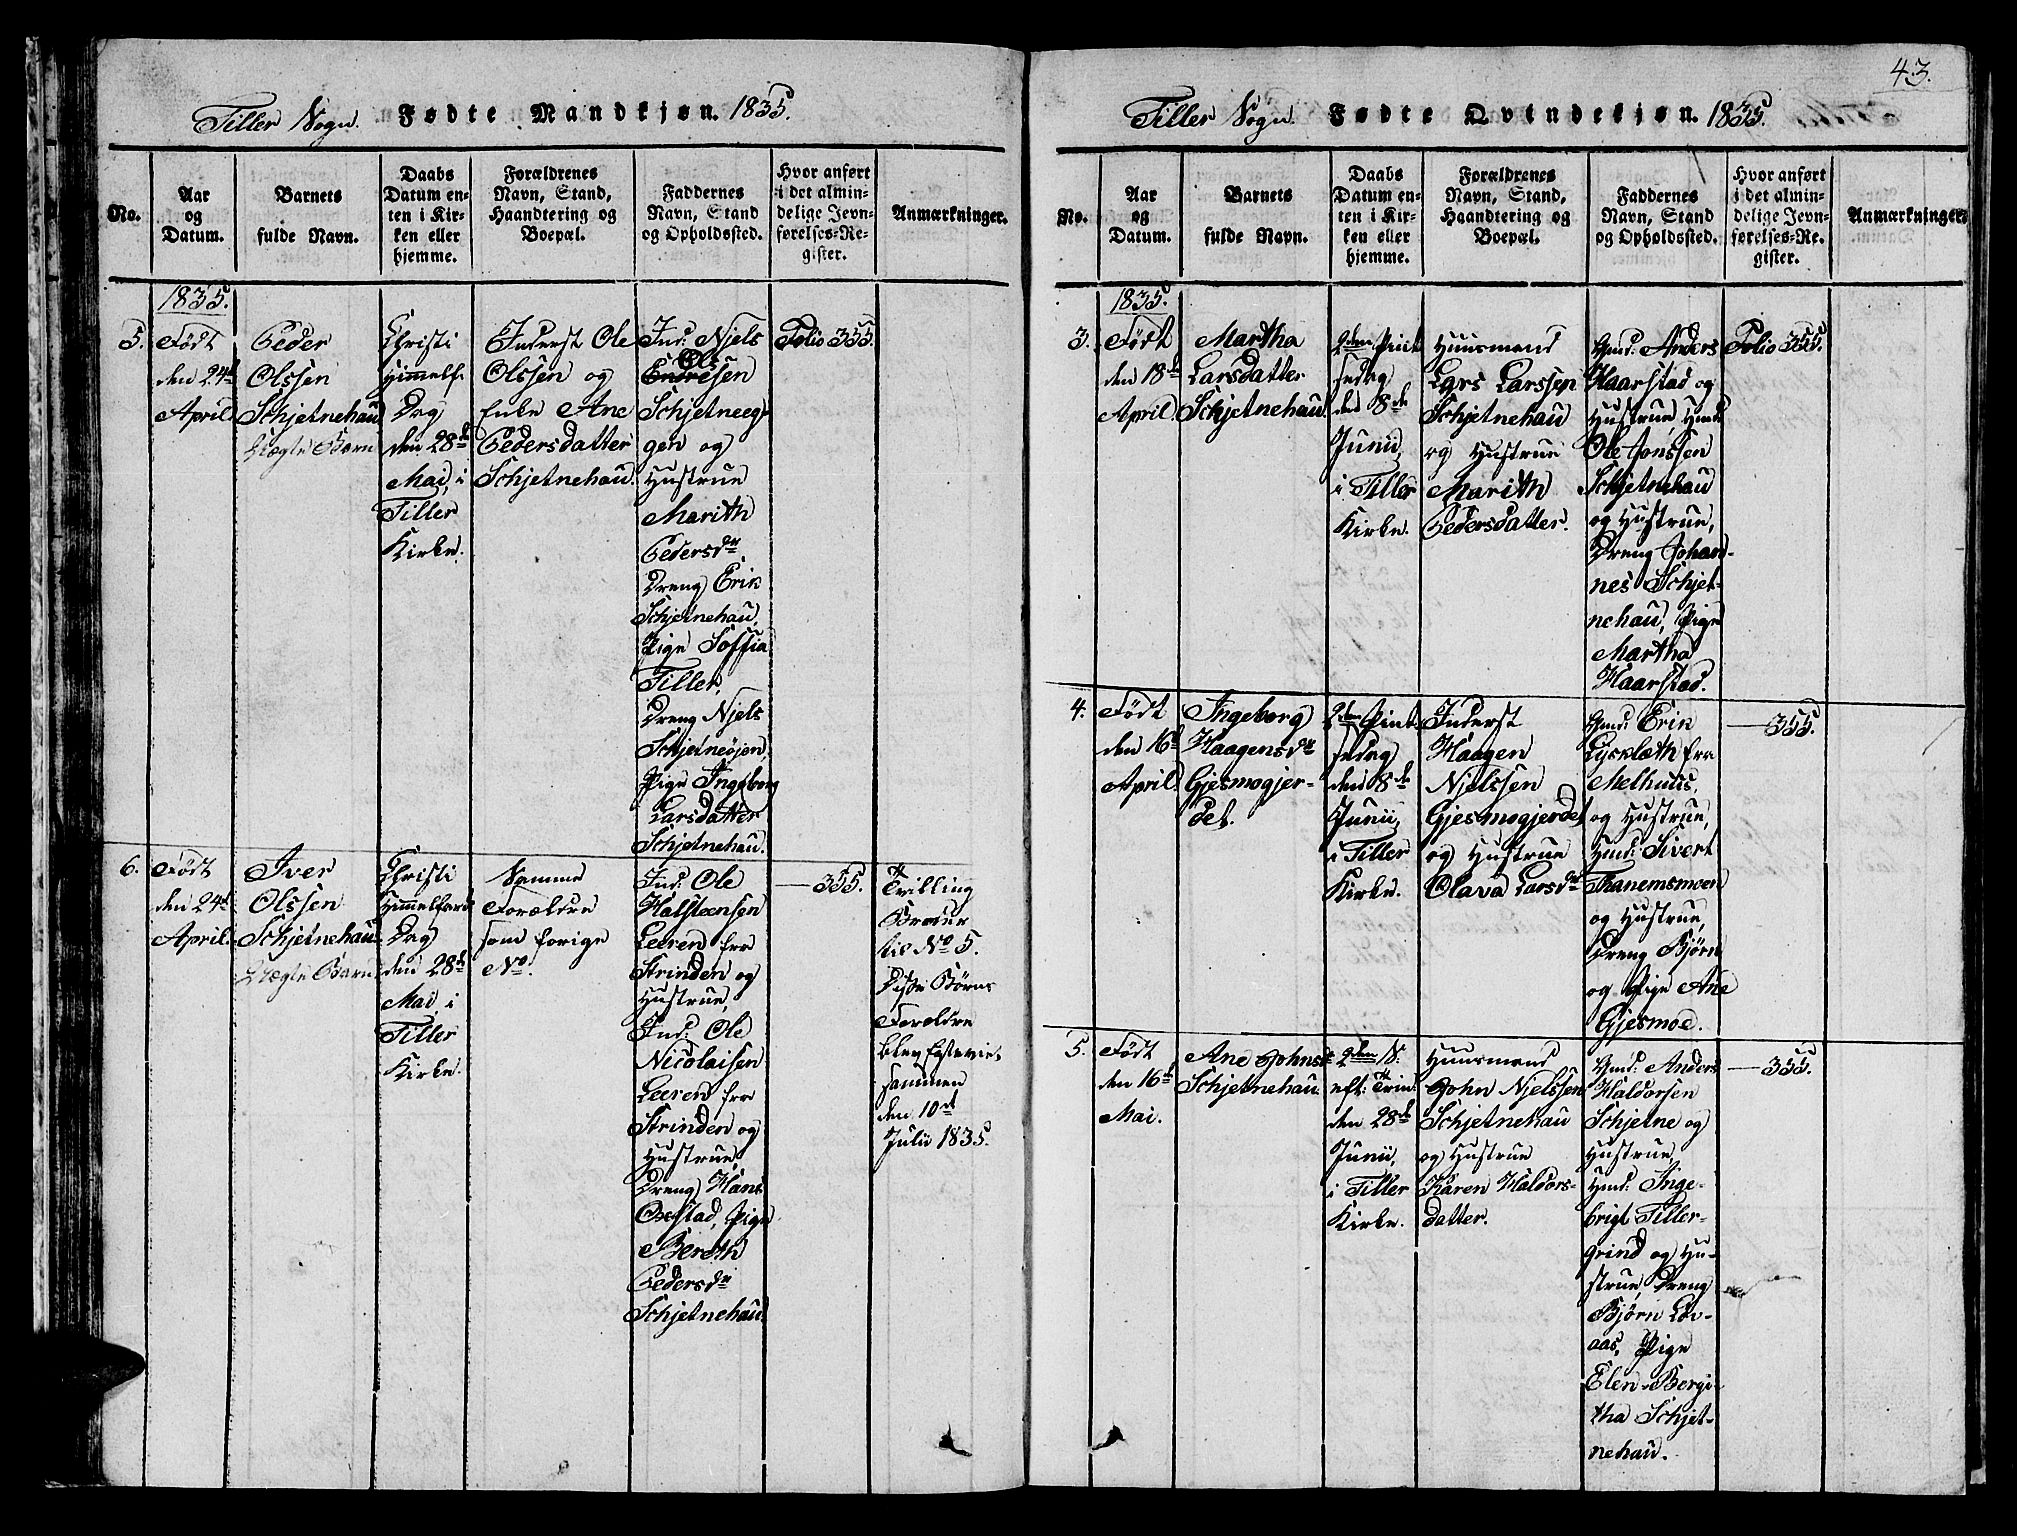 Tiller Sogn. Fødte Mandkjøn. 1835.
No.
Aar
og
Datum.
Barnets
fulde Navn.
Daabs
Datum en-
ten i Kir-
ken eller
hjemme.
Forældrenes
Navn, Stand,
Haandtering og
Boepæl.
Faddernes
Navn, Stand
og Opholdssted.
Hvor anført
i det almin-
delige Jevn-
førelses-Re-
gister.
Anmærkninger.
1835.
5.
Født
den 24d
April.
Peder
Olssen
Schjetnehau
Uægte Barn
Christi
Himmelf.
Dag
den 28d
Mai, i
Tiller
Kirke.
Inderst Ole
Olssen og
Enke Ane
Pedersdatter
Schjetnehau.
Ind: Njels
Olsen
Schjetneeg-
gen og
Hustrue
Marith
Pedersdr.
Dreng Erik
Schjetnehau,
Pige Soffia
Tiller,
Dreng Njels
Schjetneøjen,
Pige Ingeborg
Larsdatter
Schjetnehau.
Folio 355.
6.
Født
den 24d
April.
Iver
Olssen
Schjetnehau.
Uægte Barn
Christi
Himmelfærds
Dag
den 28d
Mai, i
Tiller
Kirke.
Samme
Forældre
som forige
No.
Ind: Ole
Halsteensen
Leeren fra
Strinden og
Hustrue,
Ind: Ole
Nicolaisen
Leeren fra
Strinden og
Hustrue,
Dreng Hans
Oxstad, Pige
Bereth
Pedersdr
Schjetnehau.
— 355.
Tvilling
Broder
til No 5.
Disse Børns
Forældre
blev
sammen
den 10d
Julii 1835.
43.
Tiller Sogn. Fødte Qvindekjøn. 1835.
No.
Aar
og
Datum.
Barnets
fulde Navn.
Daabs
Datum en-
ten i Kir-
ken eller
hjemme.
Forældrenes
Navn, Stand,
Haandtering og
Boepæl.
Faddernes
Navn, Stand
og Opholdssted.
Hvor anført
i det almin-
delige Jevn-
førelses-Re-
gister.
Anmærkninger.
1835.
3.
Født
den 18d
April.
Martha
Larsdatter
Schjetnehau.
2den Pint-
sedag
den 8de
Junii,
i Tiller
Kirke.
Huusmand
Lars Larssen
Schjetnehau
og Hustrue
Marith
Pedersdatter.
Gmd: Anders
Haarstad og
Hustrue, Hmd:
Ole Jonssen
Schjetnehau
og Hustrue,
Dreng Johan-
nes Schjet-
nehau, Pige
Martha
Haarstad.
Folio 355.
4.
Født
den 16d
April.
Ingeborg
Haagensdr
Gjesmogjer-
det.
2den Pint-
sedag
den 8de
Junii,
i Tiller
Kirke.
Inderst
Haagen
Njelssen
Gjesmogjerdet
og Hustrue
Olava Larsdr
Gmd: Erik
Lysklæth fra
Melhuus,
og Hustrue,
Hmd: Sivert
Thanemsmoen
og Hustrue,
Dreng Bjørn
og Pige Ane
Gjesmoe.
— 355.
5.
Født
den 16d
Mai.
Ane Johnsdr
Schjetnehau.
2den S.
eft: Trin:
den 28d
Junii,
i Tiller
Kirke.
Huusmand
John Njelssen
Schjetnehau
og Hustrue
Karen Haldors-
datter.
Gmd: Anders
Haldorsen
Schjetne og
Hustrue,
Hmd: Inge-
brigt Tiller-
grind og Hu-
strue, Dreng
Bjørn Løv-
aas, Pige
Elen Bergi-
tha Schjet-
nehau.
— 355.